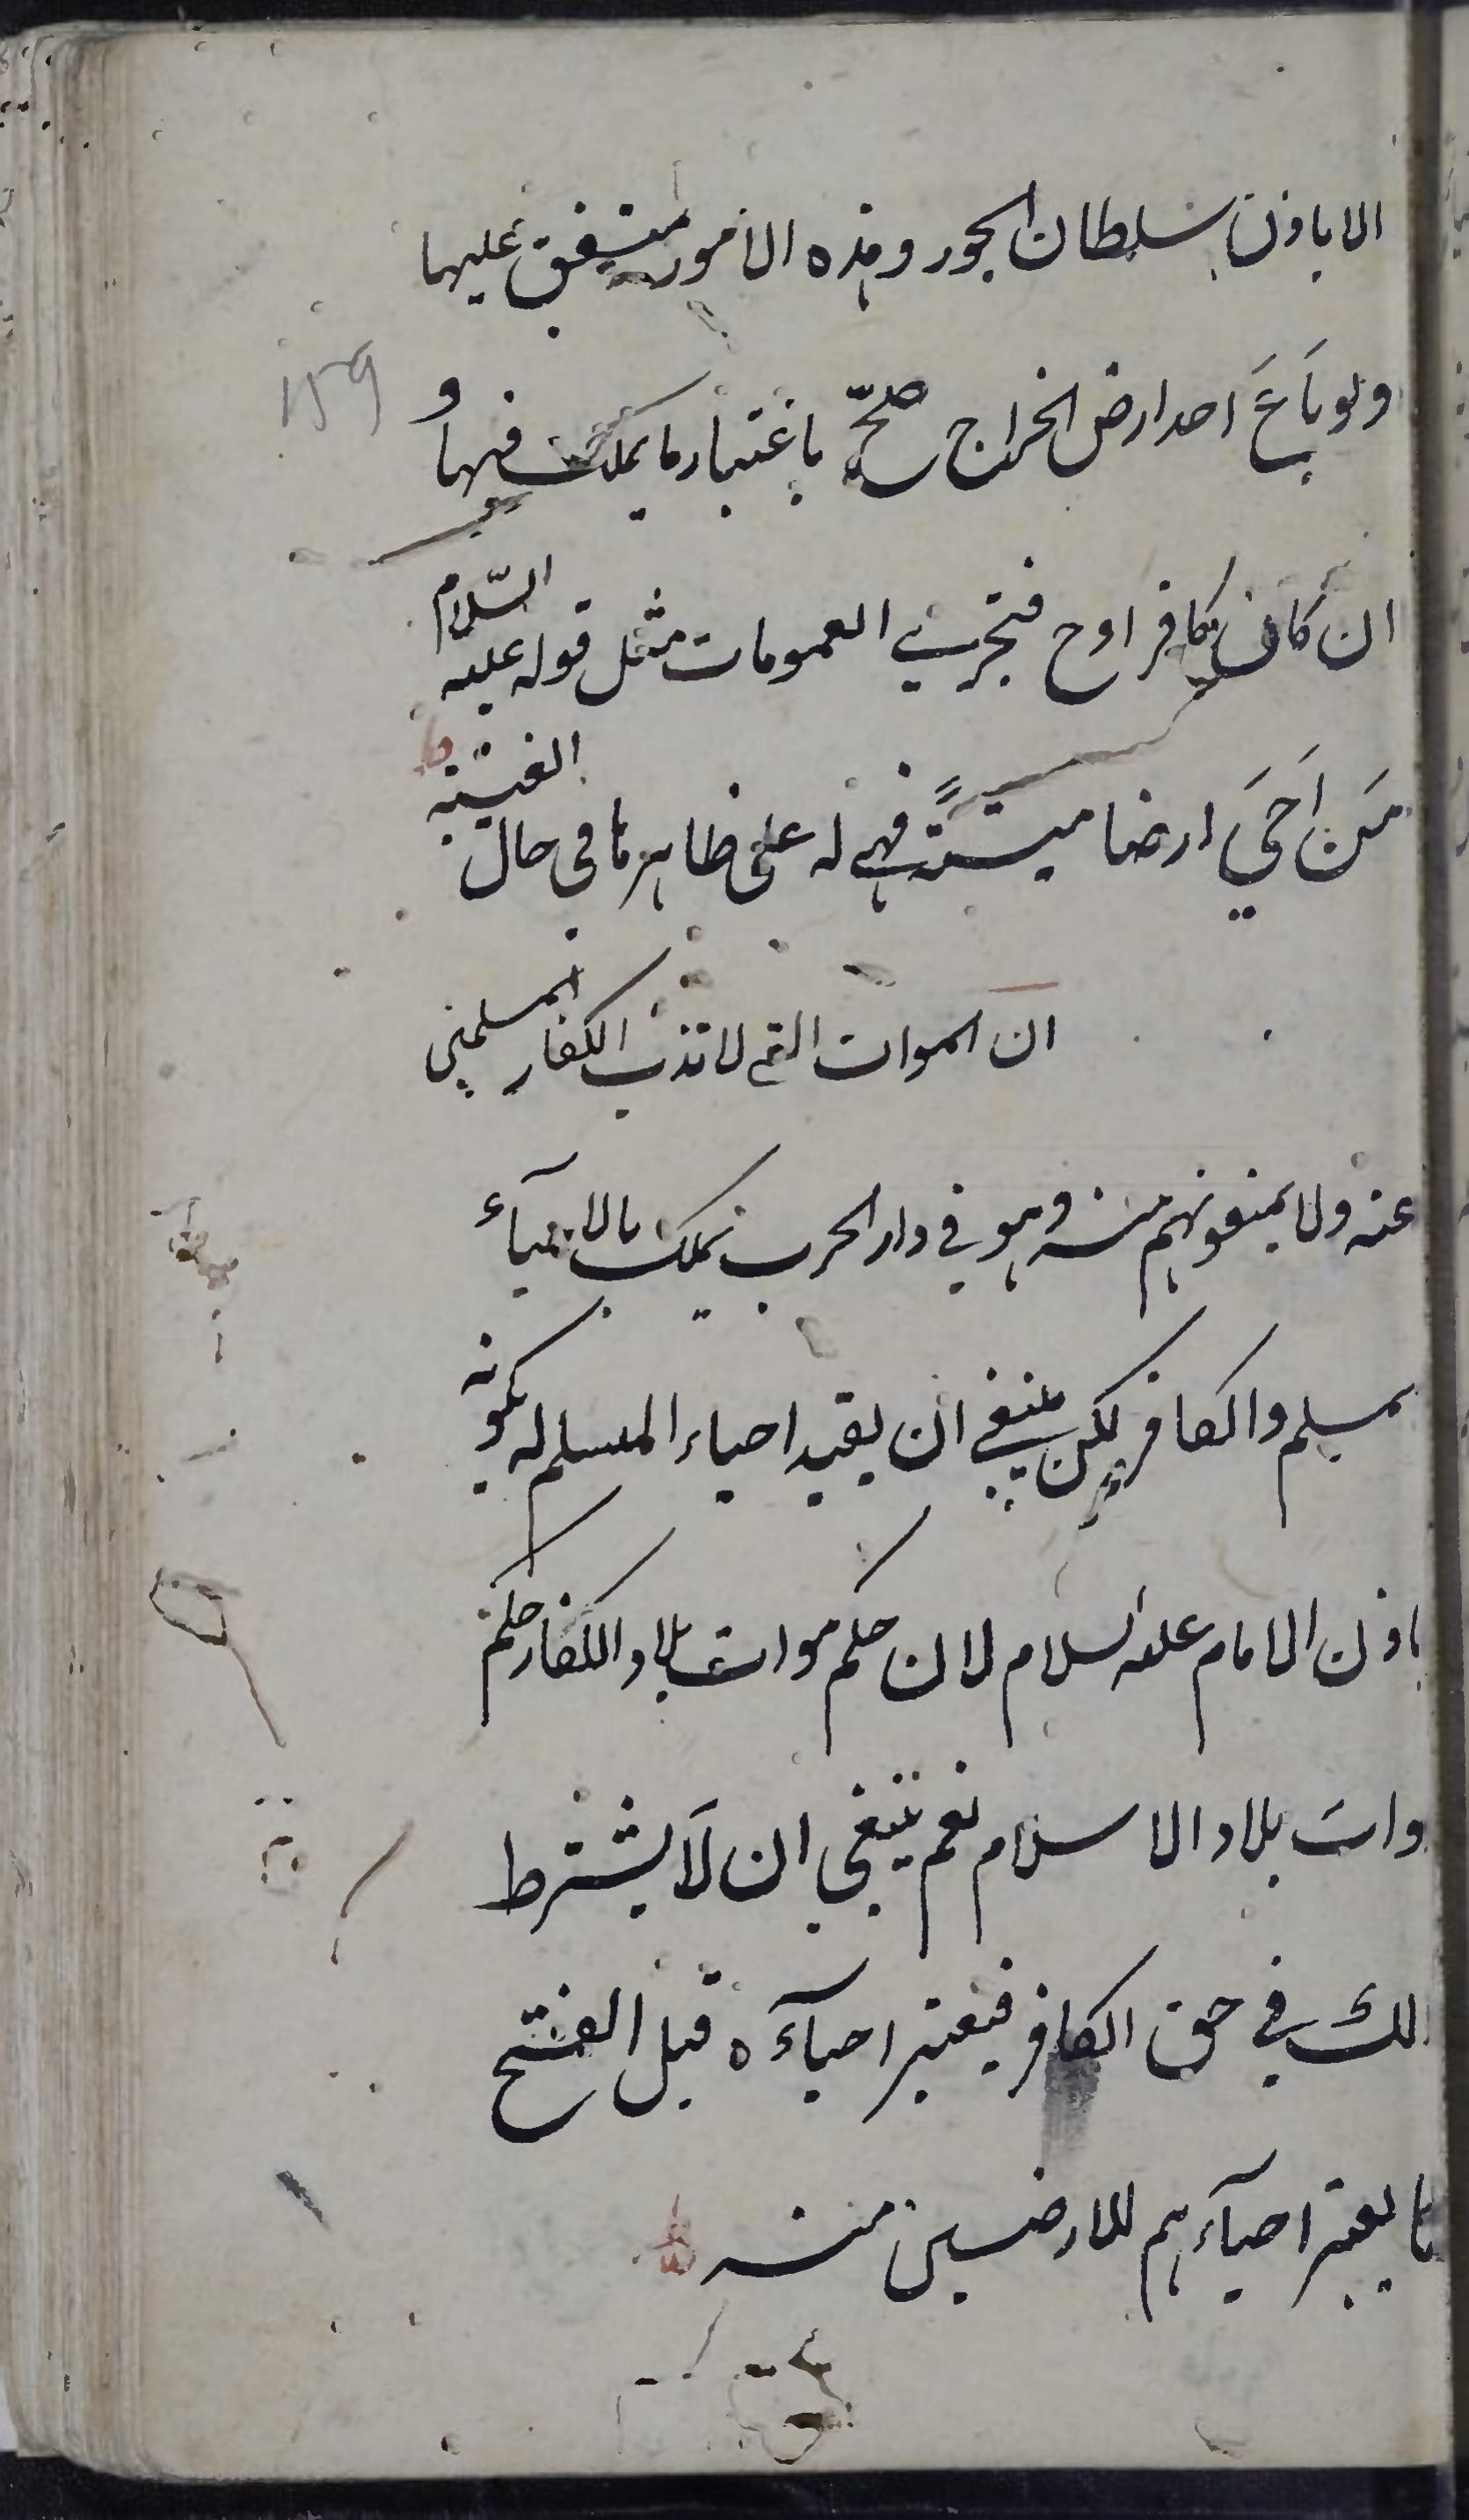 الا باذن سلطان الجور وهذه الامور متفق عليها
ولو باَعَ احد ارض الخراج صحّ باعتبار ما يملك فيها و
159
ان كان كافرا وح فتجري العمومات مثل قوله عليه السّلام
مَن اَحيَ ارضا ميتةً فهي له على ظاهرها في حال الغيبة
ان الموات التي لا تذب الكفار المسلمين
عنه ولا يمنعونهم منه وهو في دار الحرب يملك بالاحيآء
لمسلم والكافر لكن ينبغي ان يقيد احياء المسلم له بكونه
باذن الامام عليه السلام لان حكم موات بلاد الكفار حكم
وات بلاد الاسلام نعم ينبغي ان لَا يشترط
لك في حق الكافر فيعتبر احيآءه قبل الفتح
ما يعتبر احيآءهم للارضين منه